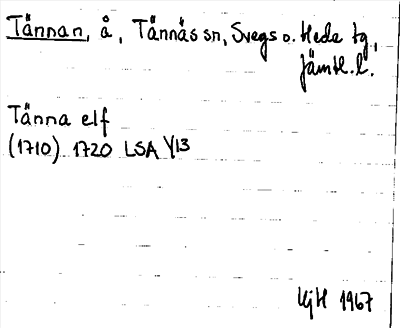 Tännan, å, Tännäs sn, Svegs o. Heda tg,
Jämtl. l.
Tänna elf
(1710) 1720 LSA Y13
UjH 1967